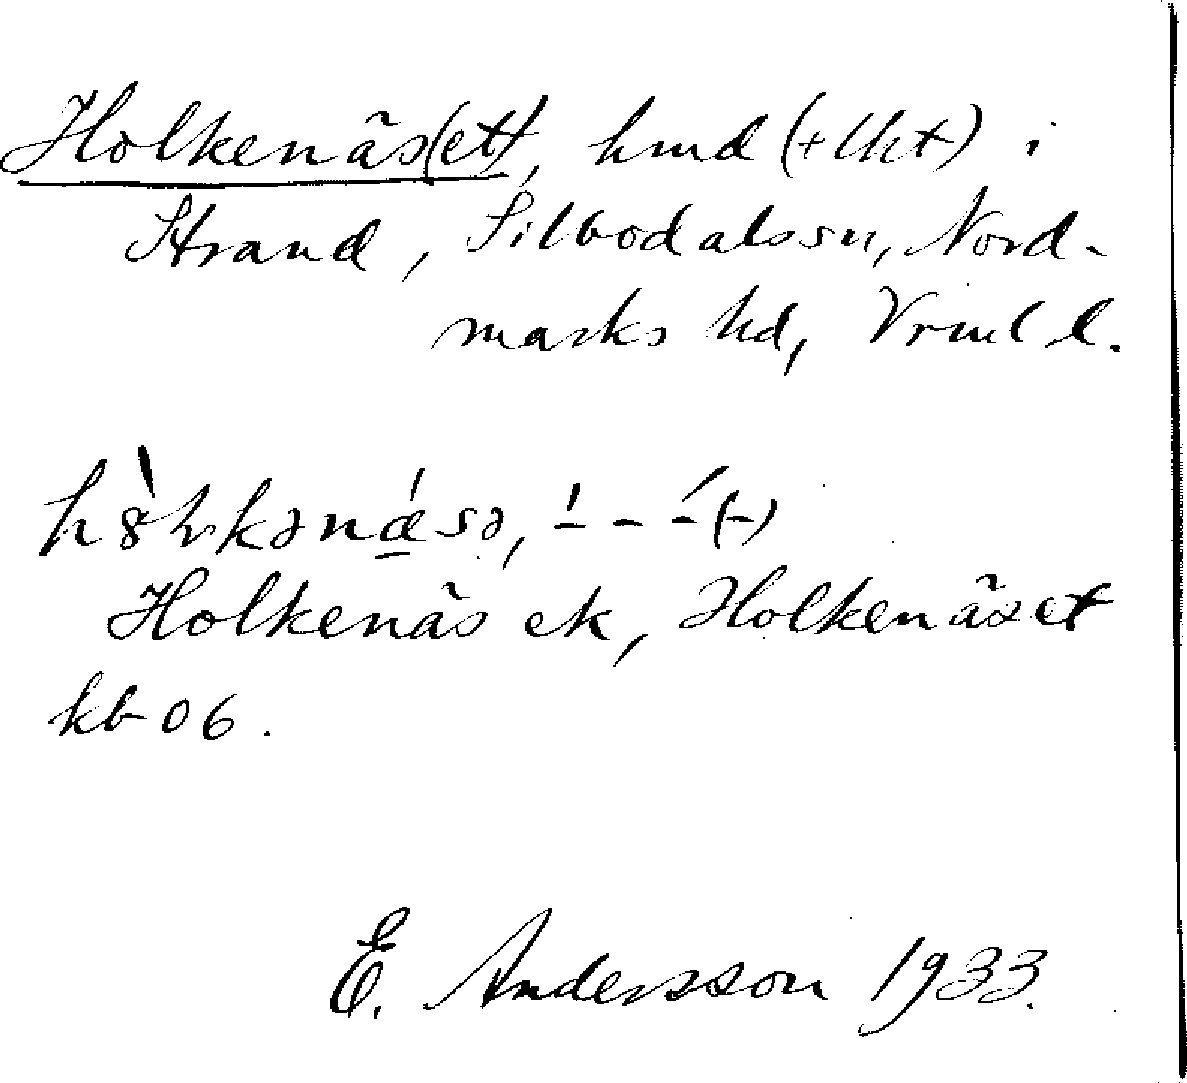 Holkenäs(et), hmd (+ lht) i
Strand, Silbodalssn, Nord-
marks hd, Vrml l.
Holkenäs ek, Holkenäset
kb 06.
E. Andersson 1933.